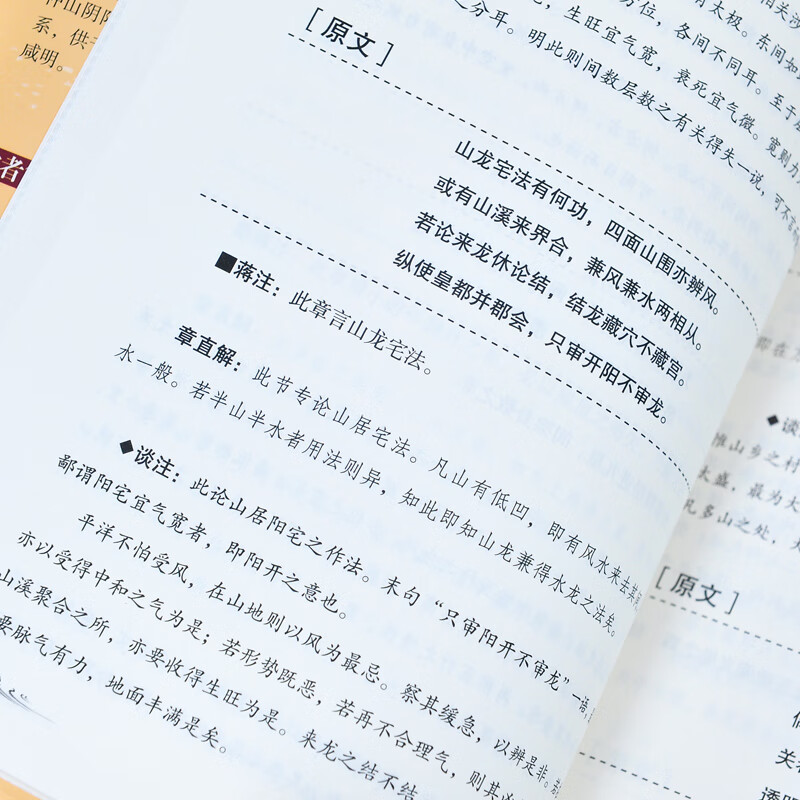 种山阴阳
系，供
咸明。
者
相关涉
有太极。东间如
方位，各间不同耳。至于
，生旺宜气宽，衰死宜气微。宽则力
之分耳。明此则间数层数之有关得失一说，可不
［原文］
山龙宅法有何功，四面山围亦辨风。
或有山溪来界合，兼风兼水两相从。
若论来龙休论结，结龙藏穴不藏宫。
纵使皇都并郡会，只审开阳不审龙。
■蒋注：此章言山龙宅法。
章直解：此节专论山居宅法。凡山有低凹，即有风水来去其
水一般。若半山半水者用法则异，知此即知山龙兼得水龙之法矣。
◆谈注：此论山居阳宅之作法。末句“只审阳开不审龙”一语，
鄙谓阳宅宜气宽者，即阳开之意也。
平洋不怕受风，在山地则以风为最忌。察其缓急，以辨是非。
亦以受得中和之气为是；若形势既恶，若再不合理气，则其
山溪聚合之所，亦要收得生旺为是。来龙之结不结
要脉气有力，地面丰满是矣。
即在
◆谈
惟山乡之村
大盛，最为大
凡多山之处，
［原文］
关
透